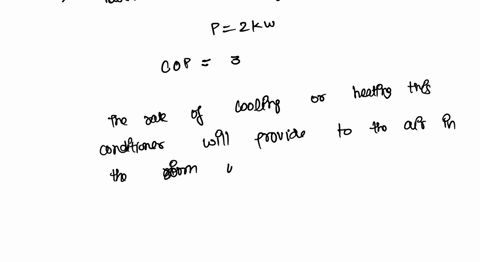 P = 2kw
COP = 3
The rate of cooling or heating this
conditioner will provide to the air in
the room